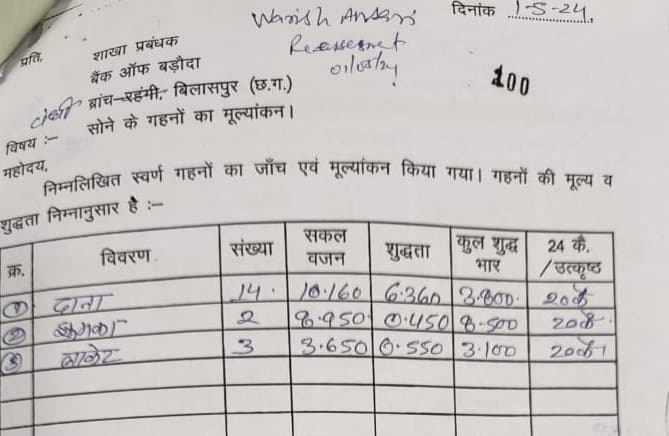 Warish Ansari
दिनांक 1-5-24
प्रति,
शाखा प्रबंधक
01/05/24
बैंक ऑफ बड़ौदा
100
ब्रांच-रहंगी, बिलासपुर (छ.ग.)
विषय :- सोने के गहनों का मूल्यांकन।
महोदय,
निम्नलिखित स्वर्ण गहनों का जाँच एवं मूल्यांकन किया गया। गहनों की मूल्य व
शुद्धता निम्नानुसार है :-
क्र. विवरण संख्या सकल वजन शुद्धता कुल शुद्ध भार 24 कै. /उत्कृष्ठ
① दाना 14. 10.160 6.360 3.800. 20कै
② झुमका 2 8.950 0.450 8.500 20कै.
③ लाकेट 3 3.650 0.550 3.100 20कै